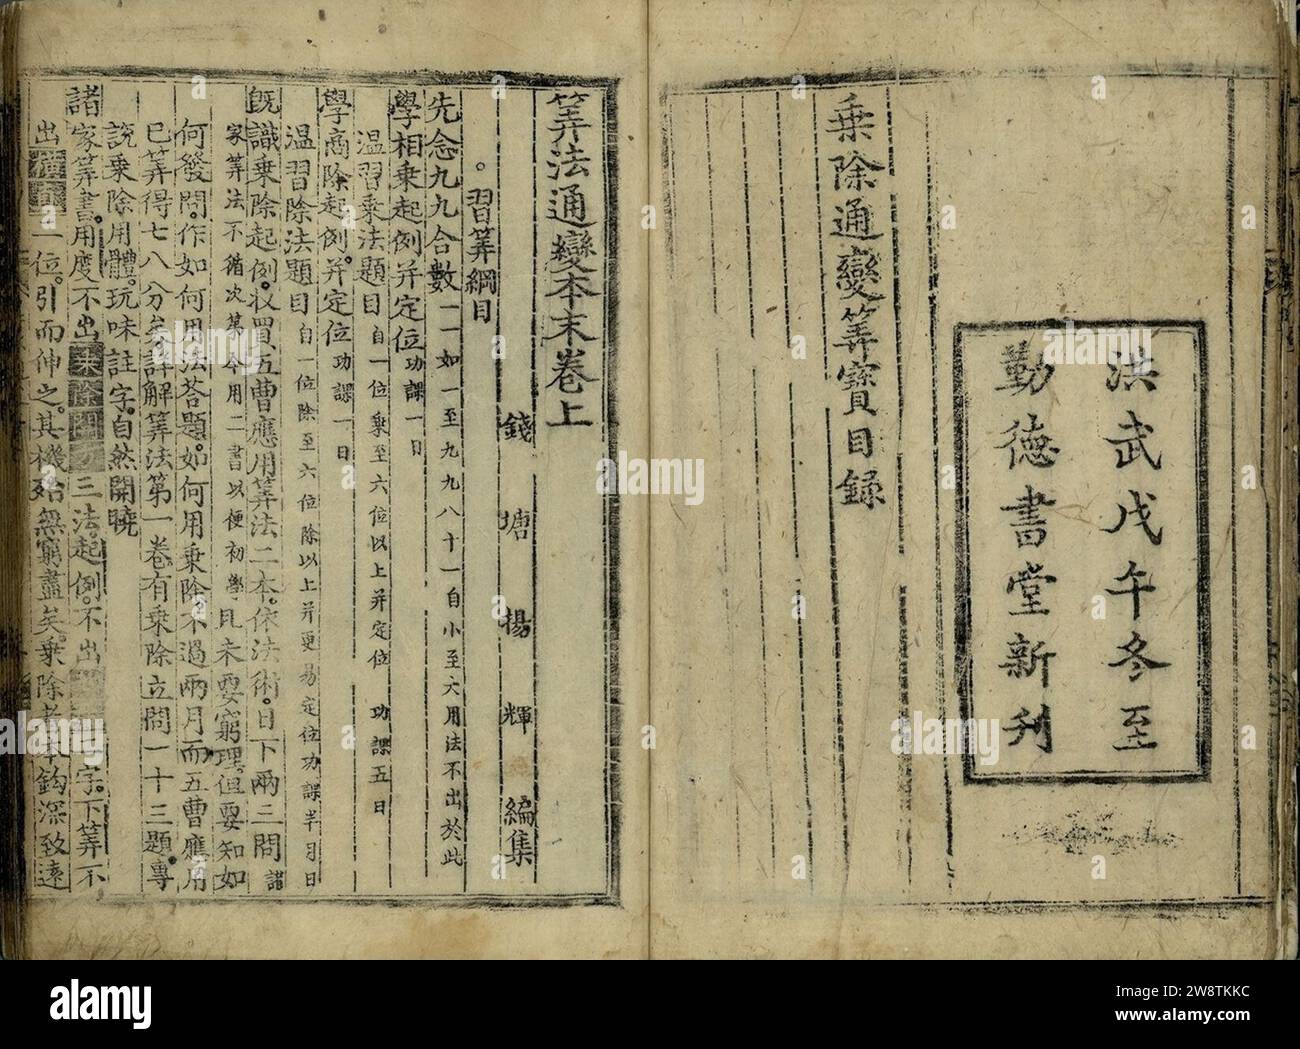 乗除通變筭寳目録
洪武戊午冬至
勤徳書堂新刋
筭法通變本末卷上
錢塘楊輝編集
。習筭綱目
先念九九合數一一如一至九九八十一自小至大用法不出於此
學相乗起例并定位功課一日
温習乗法題目自一位乗至六位以上并定位功課五日
學商除起例并定位功課一日
温習除法題目自一位除至六位除以上并更易定位功課半月日
既識乗除起例收買五曹應用筭法二本。依法術。日下兩三問諸
家筭法不循次第今用二書以便初學且未要窮理。但要知如
何發問。作如何用法荅題。如何用乗除。不過兩月而五曹應用
已筭得七八分矣。詳解筭法第一卷有乗除立問一十三題專
說乗除用體。玩味註字。自然開曉
諸家筭書。用度不出乗除開方三法。起例。不出 二字。下筭不
出横直二位。引而伸之。其機殆無窮盡矣。乗除者本鈎深致遠
alamy
Image ID: 2W8TKKC
www.alamy.com